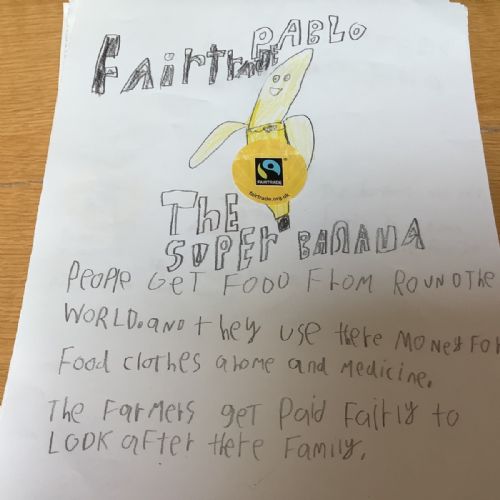 Fairtrade PABLO
FAIRTRADE
fairtrade.org.uk
THE
SUPER BANANA
PeoPle GeT FOOD FROM ROUNDThe
WORLD. and they use there Money For
Food clothes a home and Medicine.
The Farmers get Paid Fairly to
LOOK after there Family.